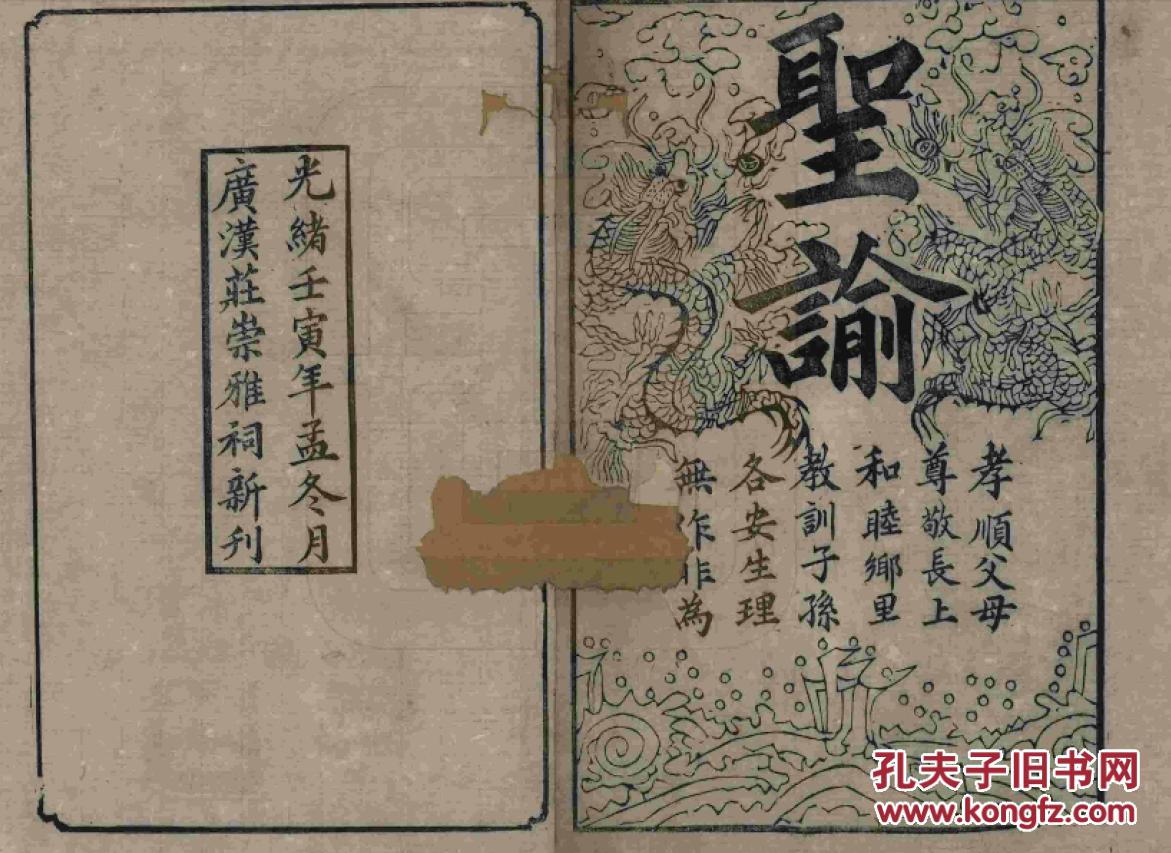 聖諭
孝順父母
尊敬長上
和睦鄉里
教訓子孫
各安生理
無作非為
光緒壬寅年孟冬月
廣漢莊崇雅祠新刊
孔夫子旧书网
www.kongfz.com